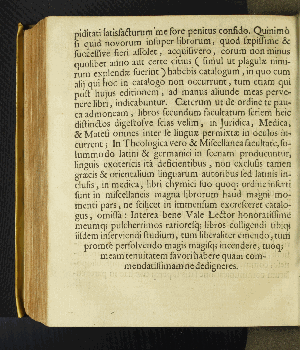 piditati satisfacturum me fore penitus confido. Quinimò
si quid novorum insuper librorum, quod sæpissime &
successive fieri assolet, acquisivero, eorum non minus
quolibet anno aut certe citius ( simul ut plagulæ nimirum
explendæ fuerint ) habebis catalogum, in quo cum
alij qui hoc in catalogo non occurrunt, tum etiam qui
post hujus editionem, ad manus aliunde meas pervenere
libri, indicabuntur. Cæterum ut de ordine pauca
admoneam, libros secundum facultatum seriem heic
distinctos digestosve sistas velim, in Juridica, Medica,
& Matesi omnes inter se linguæ permixtæ in oculos incurrent
; In Theologica vero & Miscellanea facultate, solummodo
latini & germanici in scenam producuntur,
linguis exotericis ità deficientibus, non exclusis tamen
græcis & orientalium linguarum autoribus sed latinis inclusis
, in medica, libri chymici suo quoq; ordine inserti
sunt in miscellaneis magna librorum haud magni momenti
pars, ne scilicet in immensum excresceret catalogus
, omissa: Interea bene Vale Lector honoratissime
meumq; pulcherrimos rarioresq; libros colligendi tibiq;
iisdem inserviendi studium, tum liberaliter emendo, tum
promtè persolvendo magis magisq; incendere, tuoq;
meam tenuitatem favori habere quam commendatissimam
ne dedigneris.